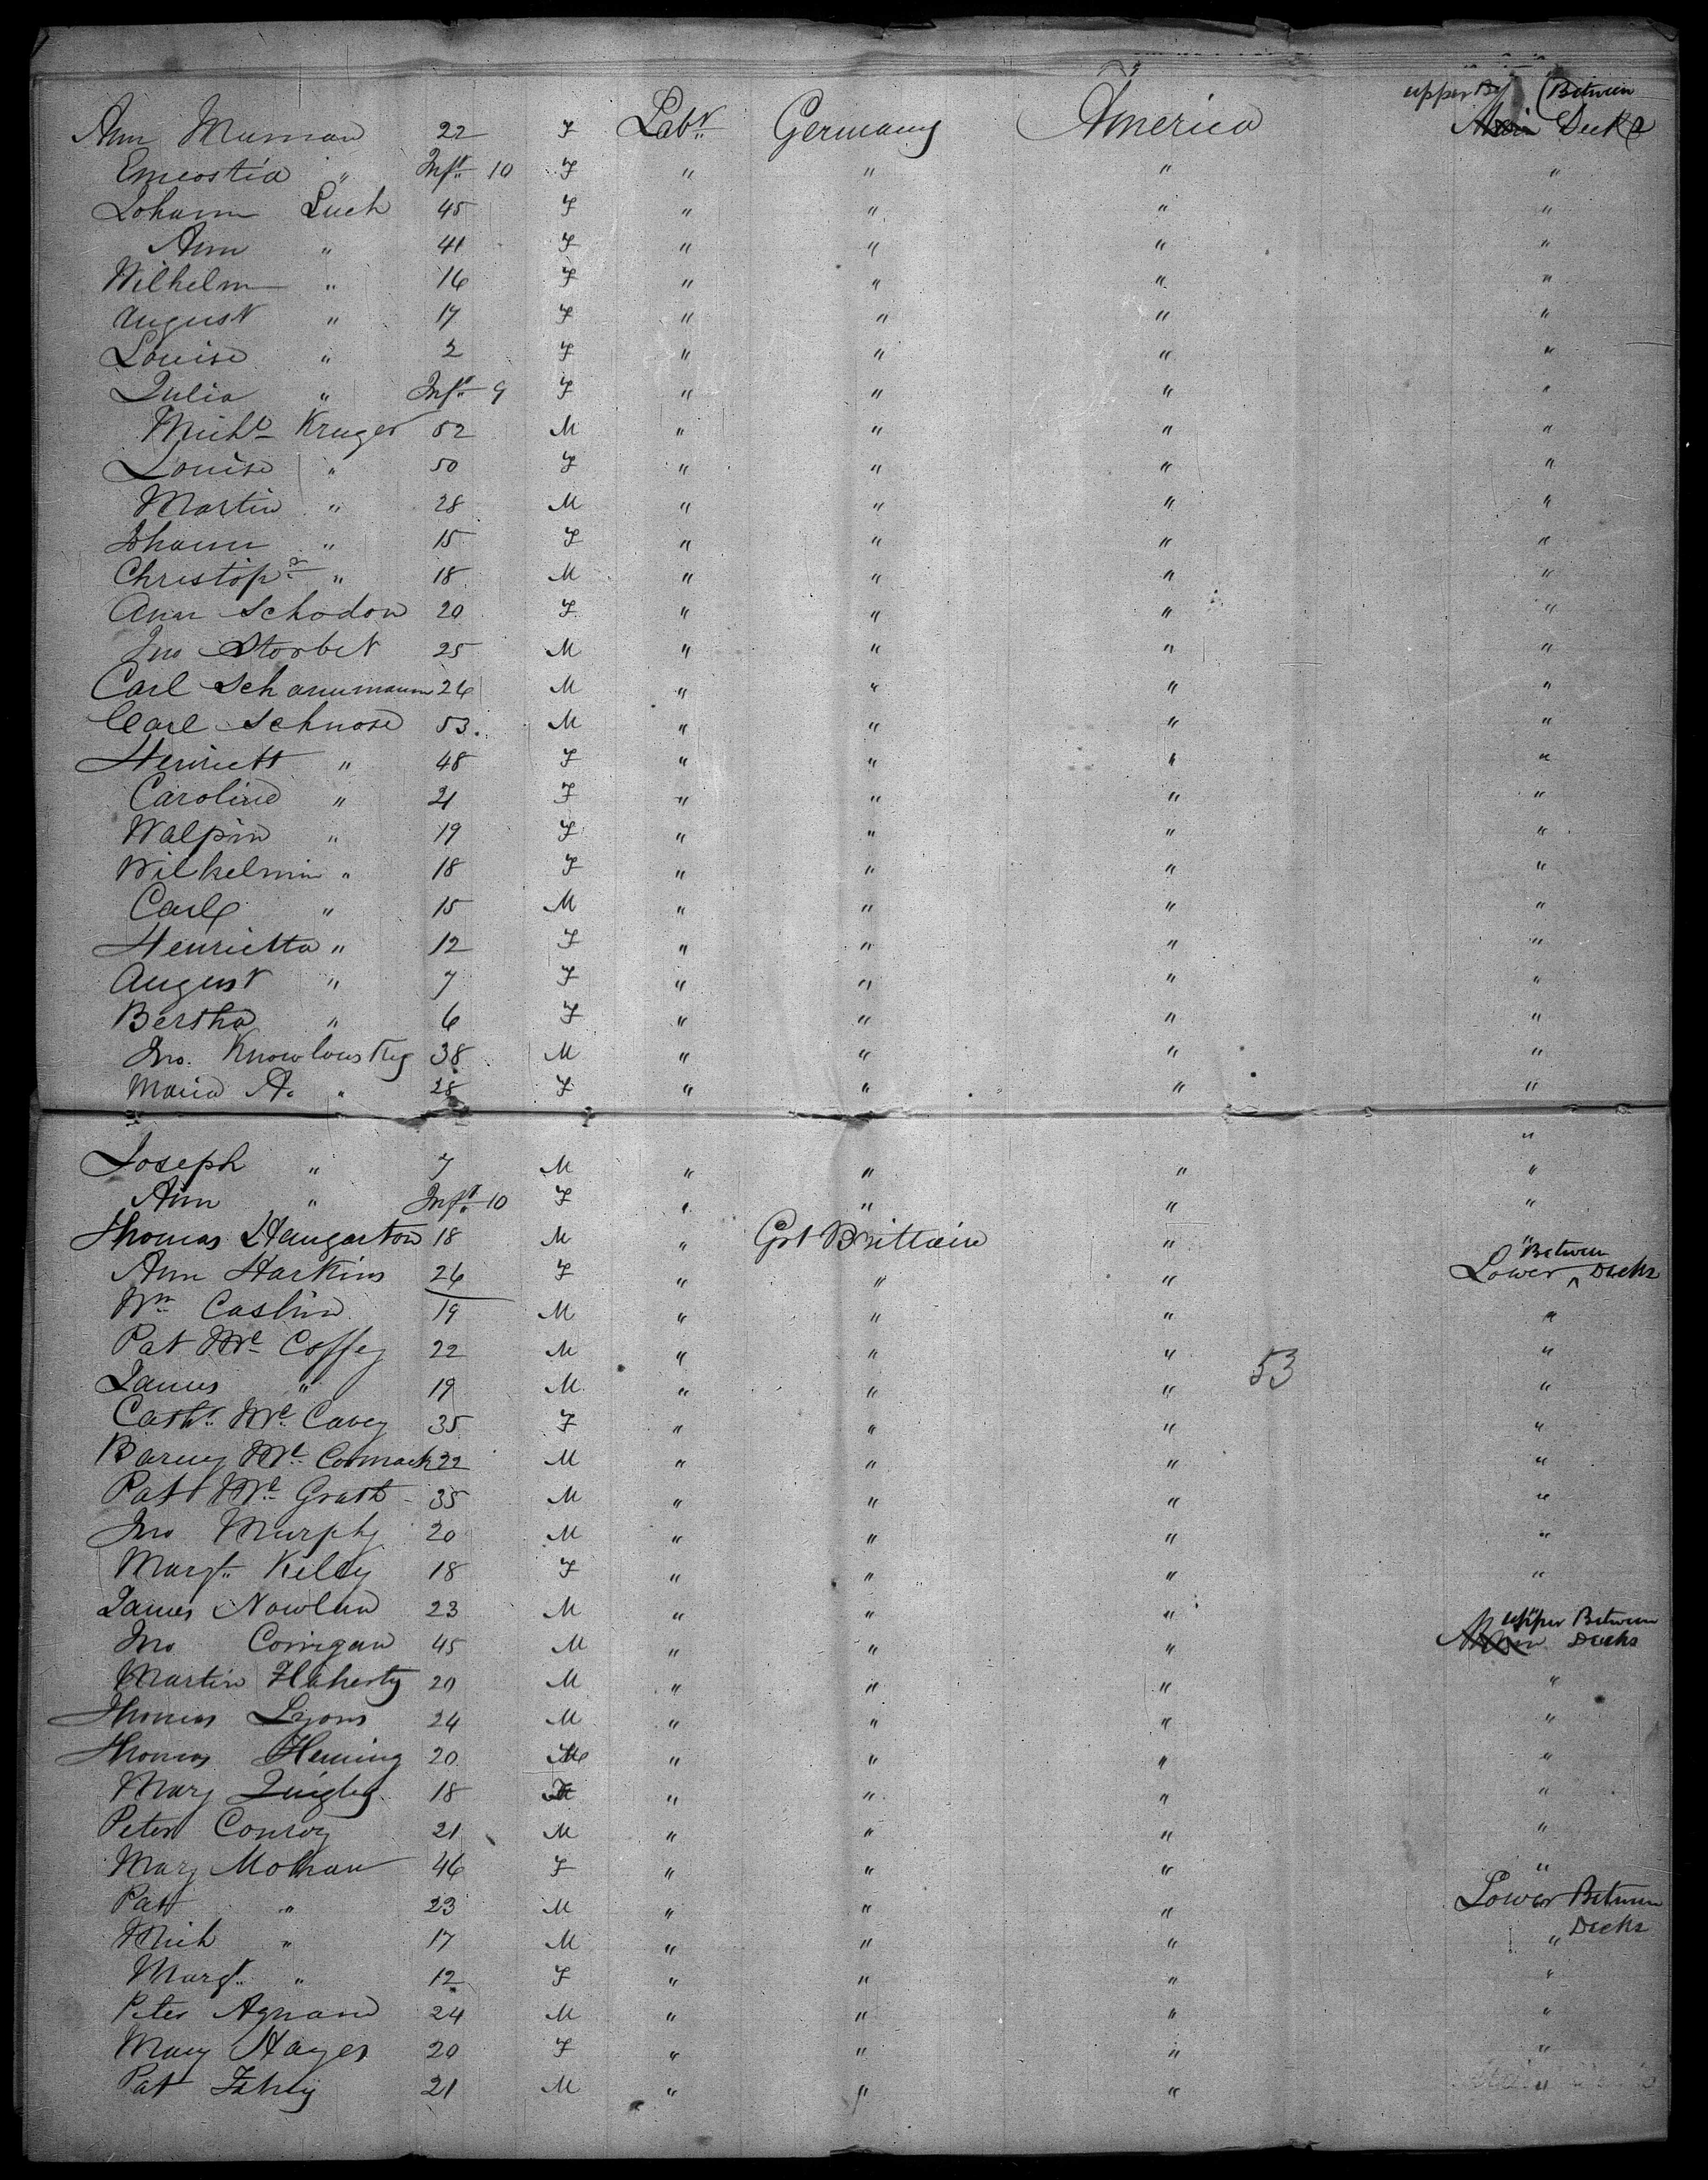 upper Be (Between
Ann Muman 22 F Labr Germany America Main Decks
Emeostia " Inft 10 F " " " "
Johann Luck 45 F " " " "
Ann " 41 F " " " "
Wilhelm " 16 F " " " "
August " 17 F " " " "
Louise " 2 F " " " "
Julia " Inft 9 F " " " "
Michl Kruger 52 M " " " "
Louise " 50 F " " " "
Martin " 28 M " " " "
Johann " 15 F " " " "
Christopr " 18 M " " " "
Ann Schodow 20 F " " " "
Jno Storbet 25 M " " " "
Carl Schanumann 26 M " " " "
Carl Schnose 53. M " " " "
Henriett " 48 F " " " "
Caroline " 21 F " " " "
Walpin " 19 F " " " "
Wilhelmin " 18 F " " " "
Carl " 15 M " " " "
Henrietta " 12 F " " " "
August " 7 F " " " "
Bertha " 6 F " " " "
Jno. Knowlousky 38 M " " " "
Maria A. " 28 F " " " "
"
Joseph " 7 M " " " "
Ann " Inft 10 F " " " "
Thomas Haugarton 18 M " Grt Brittain "
Ann Harkins 26 F " " " Lower "Between Decks
Wm Cashin 19 M " " " "
Pat Mc Coffey 22 M " " " "
53
James " 19 M " " " "
Cathe Mc Cavey 35 F " " " "
Barney Mc Cormack 22 M " " " "
Patt Mc Grath 35 M " " " "
Jno Murphy 20 M " " " "
Margt Kelly 18 F " " " "
James Nowlan 23 M " " " "
upper Between
Jno Corrigan 45 M " " " Main Decks
Martin Flaherty 20 M " " " "
Thomas Lyons 24 M " " " "
Thomas Fleming 20 M " " " "
Mary Quigley 18 F " " " "
Peter Conroy 21 M " " " "
Mary Molhan 46 F " " " "
Patt " 23 M " " " Lower Between
Decks
Mich " 17 M " " " "
Margt " 12 F " " " "
Peter Agnane 24 M " " " "
Mary Hayes 20 F " " " "
Pat Fahey 21 M " " " "